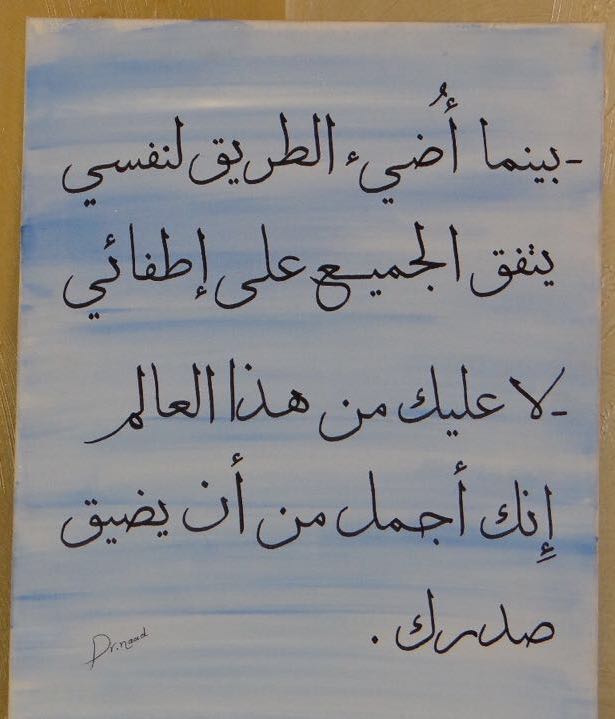 -بينما أُضيء الطريق لنفسي
يتفق الجميع على إطفائي
-لا عليك من هذا العالم
إِنك أجمل من أن يضيق
صدرك .
Dr.naad